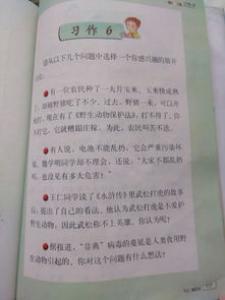 习作6
请从以下几个问题中选择一个你感兴趣的展开
有一位农民种了一大片玉米，玉米快成熟
了，却被野猪吃了不少。过去，野猪一来，可以开
枪打，现在有了《野生动物保护法》，打不得了，你
不打它，它就糟蹋庄稼。为此，农民叫苦不迭。
有人说，电池不能乱扔，它会严重污染环
境。数学明同学却不理会，还说：“大家不都乱扔
吗，也没见有多大危害！”
王仁同学读了《水浒传》里武松打虎的故事
后，提出了自己的看法。他认为武松打虎是不爱护
野生动物，因此武松称不上英雄。你认为呢？
据报道，“非典”病毒的蔓延是人类食用野
生动物引起的，你对这个问题有什么想法？